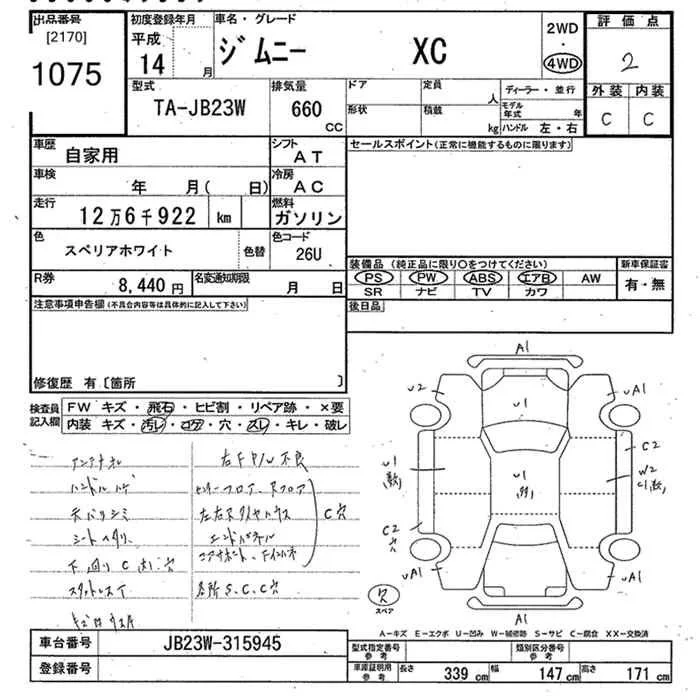 出品番号 初度登録年月 車名・グレード 2WD ・ 4WD 評価点
[2170] 平成 ジムニー XC 2
1075 14 月
型式 排気量 ドア 定員 人 ディーラー・並行 外装 内装
TA-JB23W 660 CC 形状 積載 kg モデル年式 年 C C
ハンドル 左・右
車歴 自家用 シフト AT セールスポイント(正常に機能するものに限ります)
車検 年 月( 日) 冷房 AC
走行 12万6千922 km 燃料 ガソリン
色 スペリアホワイト 色替 色コード 26U
装備品 (純正品に限り〇をつけてください) 新車保証書
R券 8,440円 名変通知期限 月 日 PS PW ABS エアB AW 有・無
SR ナビ TV カワ
注意事項申告欄(不具合内容等は具体的に記入して下さい) 後日品
修復歴 有〔箇所 〕
検査員記入欄 FW キズ・飛石・ヒビ割・リペア跡・×要
内装 キズ・汚レ・コゲ・穴・スレ・キレ・破レ
アンテナ 右F P/W 不良
ハンドルハゲ
天バリシミ C穴
シートヘタリ エンドパネル
下廻り C
スタットレス 各所 S.C.C穴
A1
U2 U1 UA1
C2
U1 U1 W2
C2 穴
UA1 UA1
欠 スペア
A1
A-キズ E-エクボ U-凹み W-補修跡 S-サビ C-腐食 XX-交換済
車台番号 JB23W-315945 型式指定番号 参考 類別区分番号 参考
登録番号 車庫証明用 参考 長さ 339 cm 幅 147 cm 高さ 171 cm